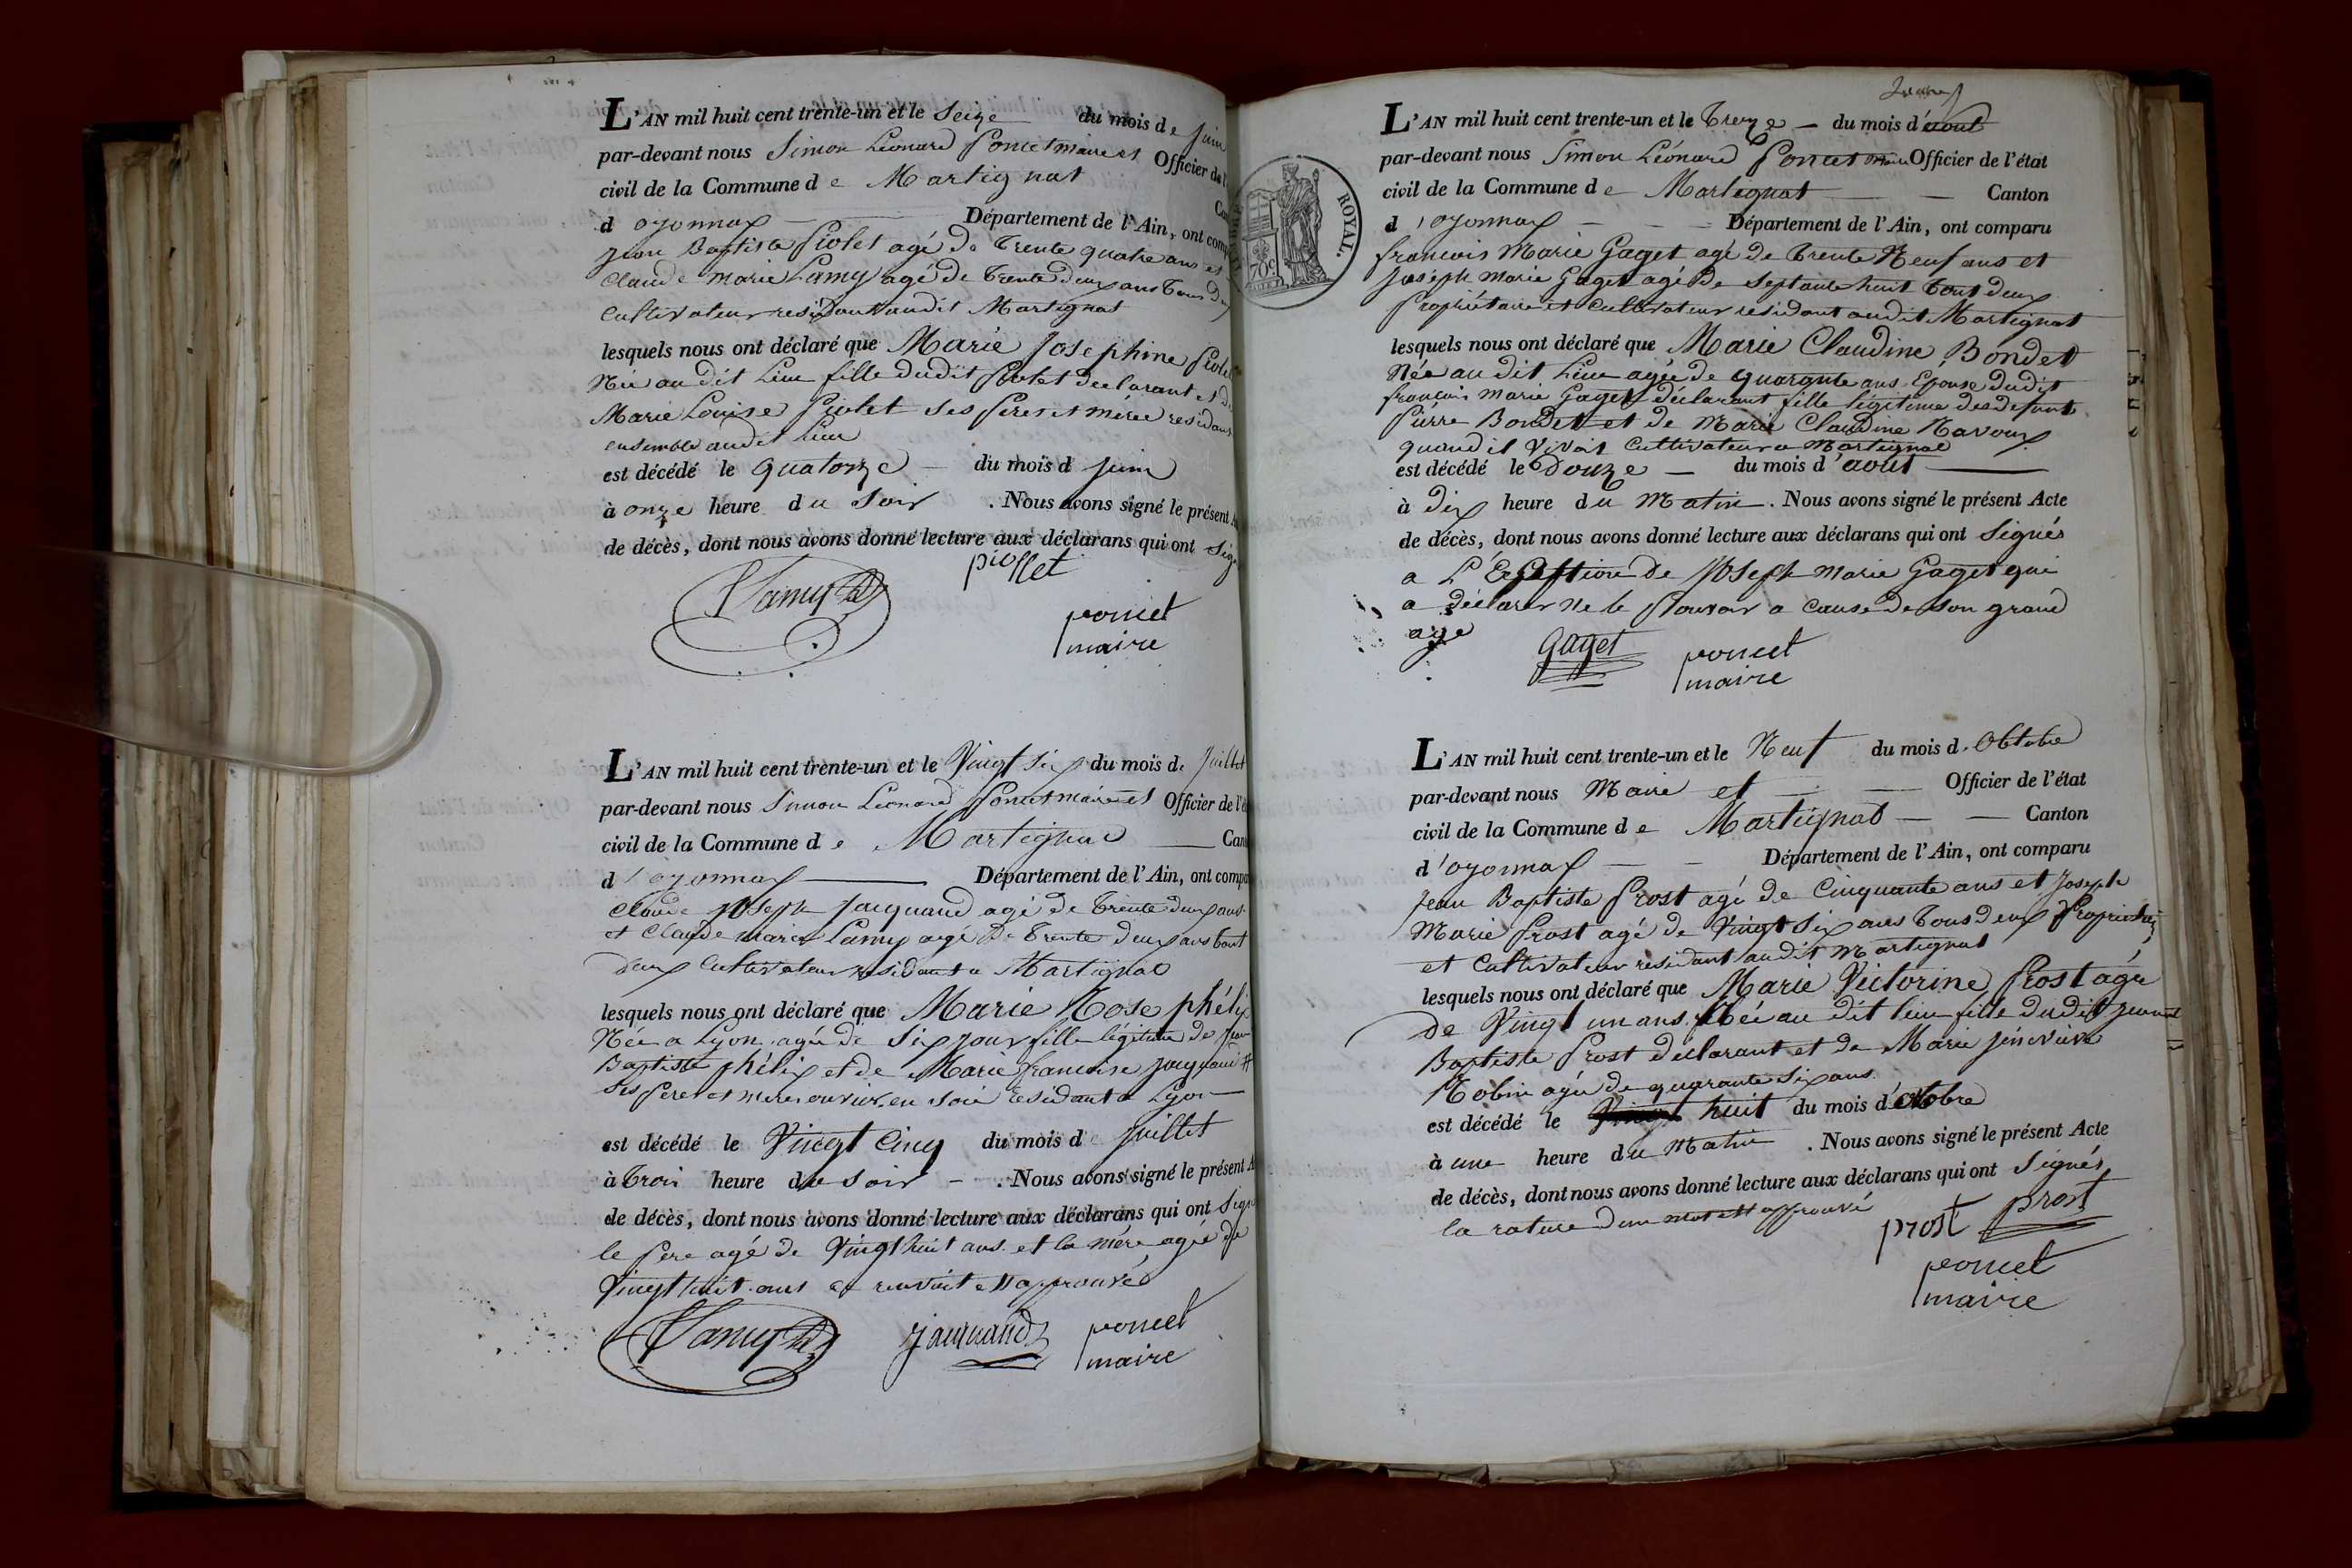 L'AN mil huit cent trente-un et le Seize du mois de juin
par-devant nous Simon Léonard Poncet maire et Officier de l'
civil de la Commune de Martignat
d oyonnax Département de l'Ain, ont comp
jean Baptiste Piolet agé de trente quatre ans et
Claude Marie Lamy agé de trente deux ans tous deux
Cultivateur residant audit Martignat
lesquels nous ont déclaré que Marie Josephine Piolet
Née au dit Lieu fille dudit Piolet declarant et de
Marie Louise Piolet ses Peres et mérée residant
ensemble audit Lieu
est décédé le quatorze du mois d juin
à onze heure du Soir . Nous avons signé le présent A
de décès, dont nous avons donné lecture aux déclarans qui ont Sign
piollet
Lamy
poncet
maire
L'AN mil huit cent trente-un et le Vingt Six du mois de Juillet
par-devant nous Simon Leonard Poncet maire et Officier de l'é
civil de la Commune de Martignat Can
d'oyonnax Département de l'Ain, ont compa
Claude Joseph Jacquand agé de trente deux ans
et Claude marie Lamy agé De trente deux ans tout
deux Cultivateur residant a Martignat
lesquels nous ont déclaré que Marie Rose phélix
Née a Lyon agée de Six jour fille légitime de jean
Baptiste phélix et de Marie francoise jacquand #
ses Peres et meres ouvier en soie residant a Lyon
est décédé le Vingt Cinq du mois d juillet
à trois heure du soir . Nous avons signé le présent A
de décès, dont nous avons donné lecture aux déclarans qui ont Sign
le Pere agé de Vingt huit ans et la mére agée de
Vingt huit ans ce renvoit est approuvé
Lamy Jacquand poncet
maire
ROYAL.
70c
L'AN mil huit cent trente-un et le Treize du mois d'aout
par-devant nous Simon Léonard Poncet maire Officier de l'état
civil de la Commune de Martignat Canton
d'oyonnax Département de l'Ain, ont comparu
francois Marie Gaget agé de trente Neuf ans et
joseph marie Gaget agé de septante huit tout deux
Propriétaire et Cultivateur residant audit Martignat
lesquels nous ont déclaré que Marie Claudine Bondet
Née au dit Lieu agée de quarante ans Epouse dudit
francois marie Gaget declarant fille légitime des defunt
Pierre Bondet et de Marie Claudine Navoux
quand il Vivoit Cultivateur a Martignat
est décédé le Douze du mois d'aout
à dix heure du Matin . Nous avons signé le présent Acte
de décès, dont nous avons donné lecture aux déclarans qui ont Signés
a L'Exception de Joseph marie Gaget qui
a déclarer ne le Pouvoir a cause de son grand
age
Gaget poncet
maire
L'AN mil huit cent trente-un et le Neuf du mois d'Obtobre
par-devant nous Maire et Officier de l'état
civil de la Commune de Martignat Canton
d'oyonnax Département de l'Ain, ont comparu
Jean Baptiste Prost agé de Cinquante ans et Joseph
Marie Prost agé de Vingt Six ans tous deux Proprietaire
et Cultivateur residant audit Martignat
lesquels nous ont déclaré que Marie Victorine Prost agée
de Vingt un ans Née au dit lieu fille dudit jean
Baptiste Prost déclarant et de Marie jénévieve
Robin agée de quarante Six ans
est décédé le Vingt huit du mois d'octobre
à une heure du Matin . Nous avons signé le présent Acte
de décès, dont nous avons donné lecture aux déclarans qui ont Signés
la rature d'un mot est approuvé
prost prost
poncet
maire